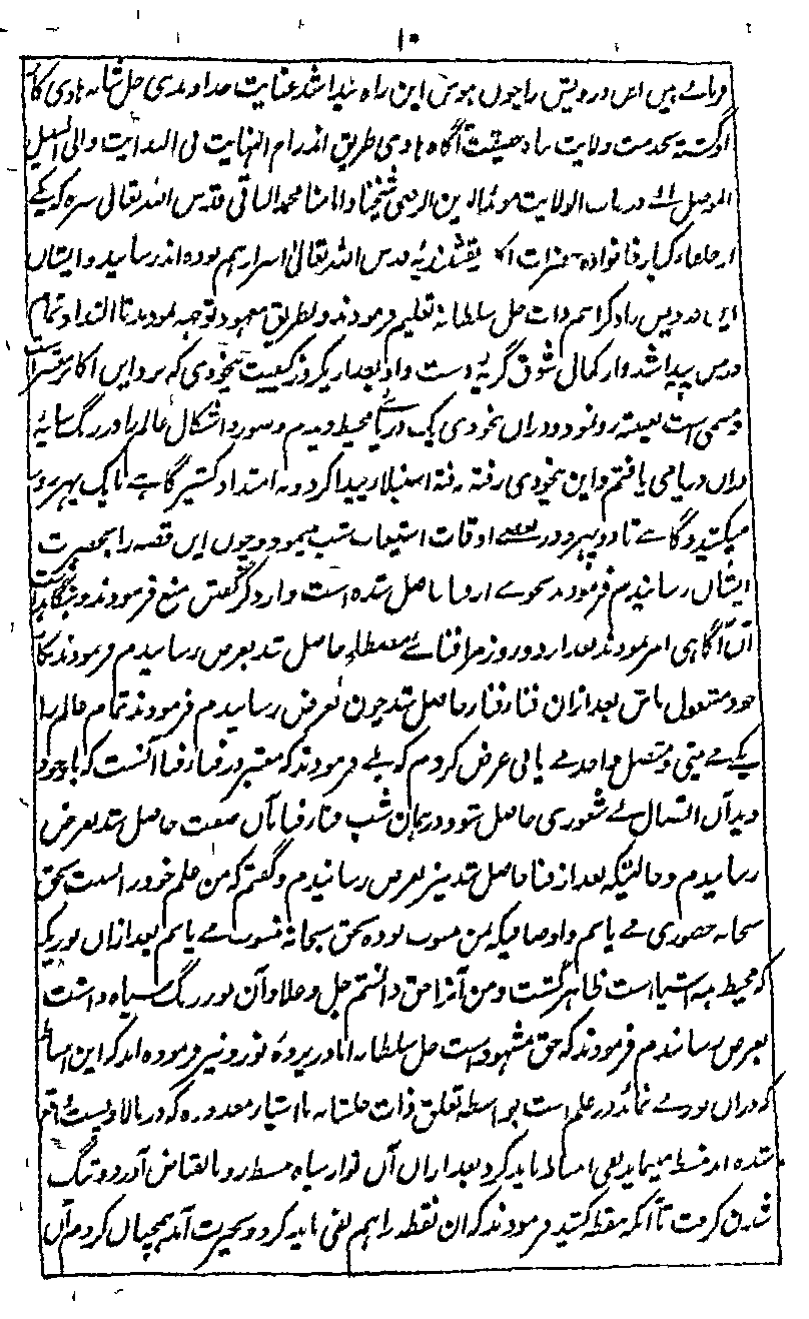 ۱۰
فرماتے ہیں این درویش را چوں ہوس این راہ پیدا شد عنایت خداوندی جل شانہ ہادی کار
او گشتہ بخدمت ولایت پناہ حقیقت آگاہ ہادی طریق اندراج النہایت فی البدایت والی السبیل
الموصل الی درجات الولایت مویدالدین الرضی شیخنا و امامنا محمد الباقی قدس اللہ تعالی سرہ کہ یکے
از خلفاء کبار خانوادہ حضرات نقشبندیہ قدس اللہ تعالی اسرارہم بودہ اند رسانید و ایشاں
این درویش را ذکر اسم ذات جل سلطانہ تعلیم فرمودند و بطریق معہود توجہ نمودند تا التذاذ تمام
در من پیدا شد و از کمال شوق گریہ دست داد بعد از یکروز کیفیت بیخودی کہ نزد ایں اکابر معتبر است
و مسمی است بغیبت رو نمود و دراں بیخودی یک دریائے محیط دیدم و صور و اشکال عالم را در رنگ سایہ
دراں دریا می یافتم و این بیخودی رفتہ رفتہ استیلا پیدا کرد و بہ امتداد کشید گاہے تا یک پہر روز
میکشید و گاہے تا دو پہر و در بعضے اوقات استیعاب شب مینمود و چوں ایں قصہ را بحضرت
ایشاں رسانیدم فرمودند نحوے از فنا حاصل شدہ است و از ذکر گفتن منع فرمودند و بنگاہداشت
آں آگاہی امر نمودند بعد از دو روز مرا فنائے مصطلح حاصل شد بعرض رسانیدم فرمودند بکار
خود مشغول باش بعد ازان فناء فنا حاصل شد چون بعرض رسانیدم فرمودند تمام عالم را
یکے مے بینی و متصل واحد مے یابی عرض کردم کہ بلے فرمودند کہ معتبر در فناء فنا آنست کہ باوجود
دید آں اتصال بے شعوری حاصل شود در ہمان شب فناء فنا بآں صفت حاصل شد بعرض
رسانیدم و حالتیکہ بعد از فنا حاصل شد نیز بعرض رسانیدم و گفتم کہ من علم خود را نسبت بحق
سبحانہ حضوری مے یابم و اوصافیکہ بمن منسوب بودہ بحق سبحانہ منسوب مے یابم بعد ازاں نوریکہ
کہ محیط ہمہ اشیا است ظاہر گشت و من آنرا حق دانستم جل و علا و آن نور رنگ سیاہ داشت
بعرض رسانیدم فرمودند کہ حق مشہود است جل سلطانہ اما در پردۂ نور و نیز فرمودہ اند کہ این انبساط
کہ دراں نور مے نماید در علم است بواسطہ تعلق ذات جلشانہ با اشیاء متعددہ کہ در بالا و پست واقع
شدہ اند منبسط مینماید نفی انبساط باید کرد بعد ازاں آں نور سیاہ منبسط رو بانقباض آورد و تنگ
شدن گرفت تا آنکہ نقطہ کشید فرمودند کہ ان نقطہ را ہم نفی باید کرد و بحیرت آمد ہمچناں کردم آں